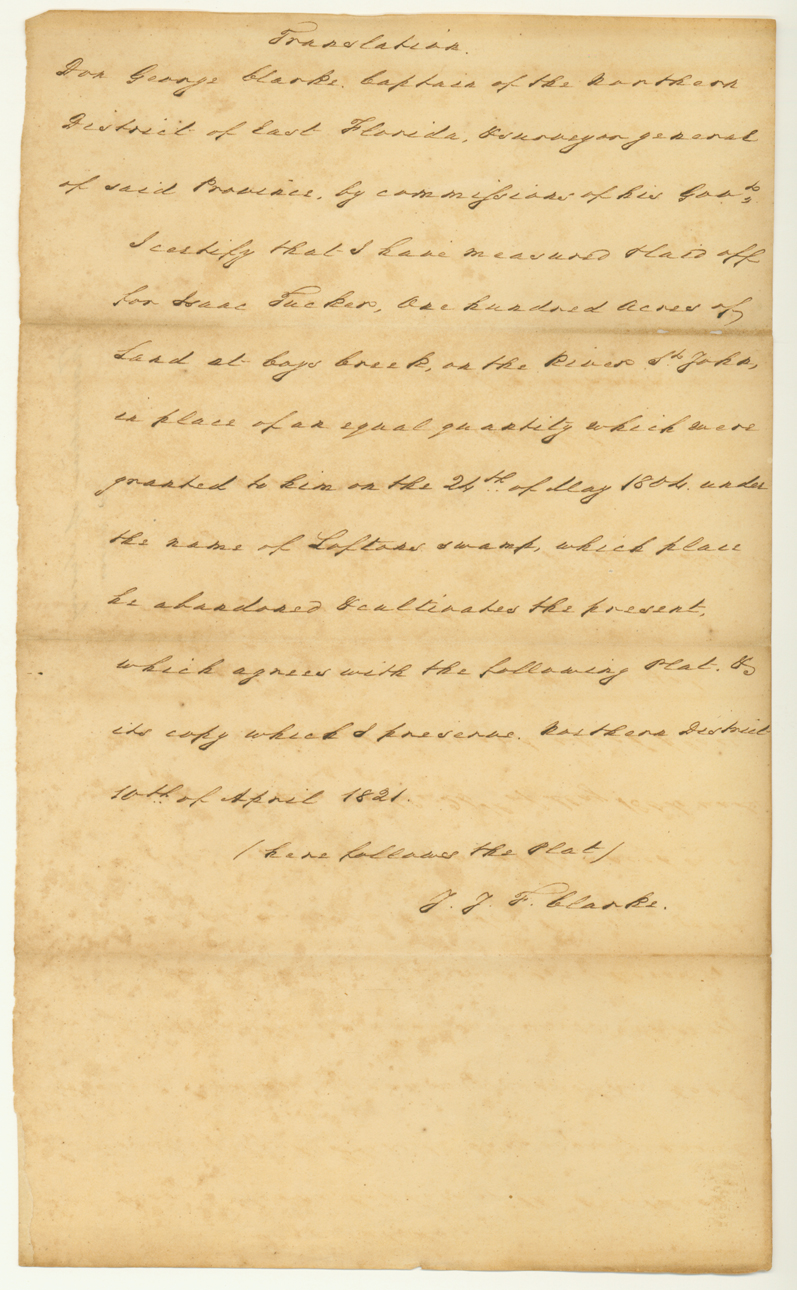 Translation.
Don George Clarke. Captain of the Northern
District of East Florida, & surveyor general
of said Province, by commissions of his Govt.
I certify that I have measured & laid off
for Isaac Tucker, One hundred Acres of
Land at Cogs Creek, on the River St. John,
in place of an equal quantity which were
granted to him on the 24th. of May 1804. under
the name of Loftons swamp, which place
he abandoned & cultivates the present,
which agrees with the following Plat. &
its copy which I preserve. Northern District
10th of April 1821.
(here follows the Plat)
J. J. F. Clarke.